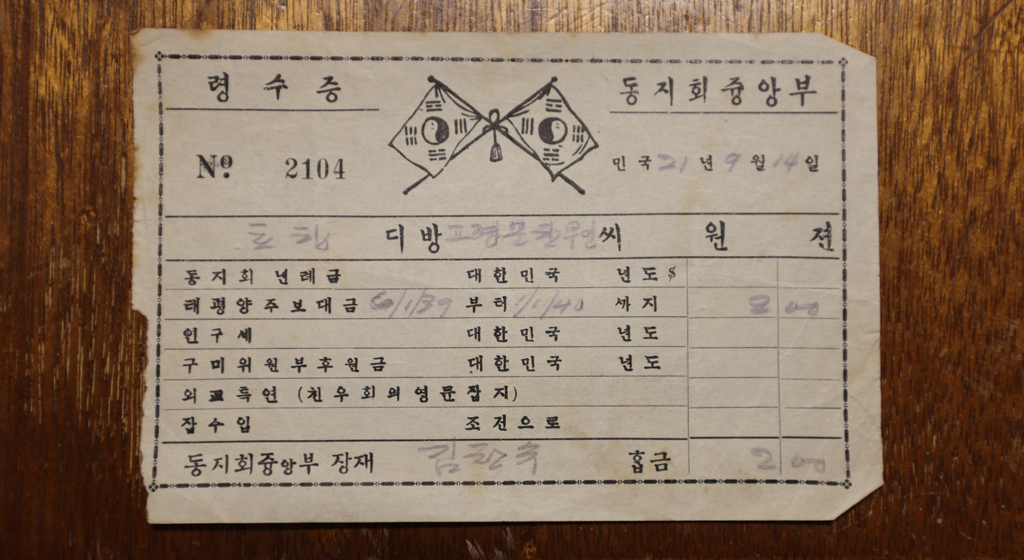 령수증
동지회중앙부
No. 2104
민국 21 년 9 월 14 일
디방 씨 원 젼
동지회 년례금 대한민국 년도 $
태평양주보대금 6/1/39 부터 1/1/40 까지 2 00
인구세 대한민국 년도
구미위원부후원금 대한민국 년도
외교특연 (친우회의영문잡지)
잡수입 조전으로
동지회중앙부 장재 김 합금 2 00